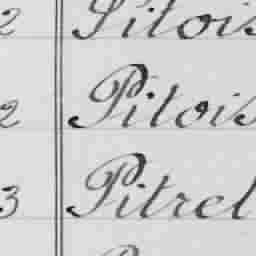 2 Pitois
2 Pitois
3 Pitrel